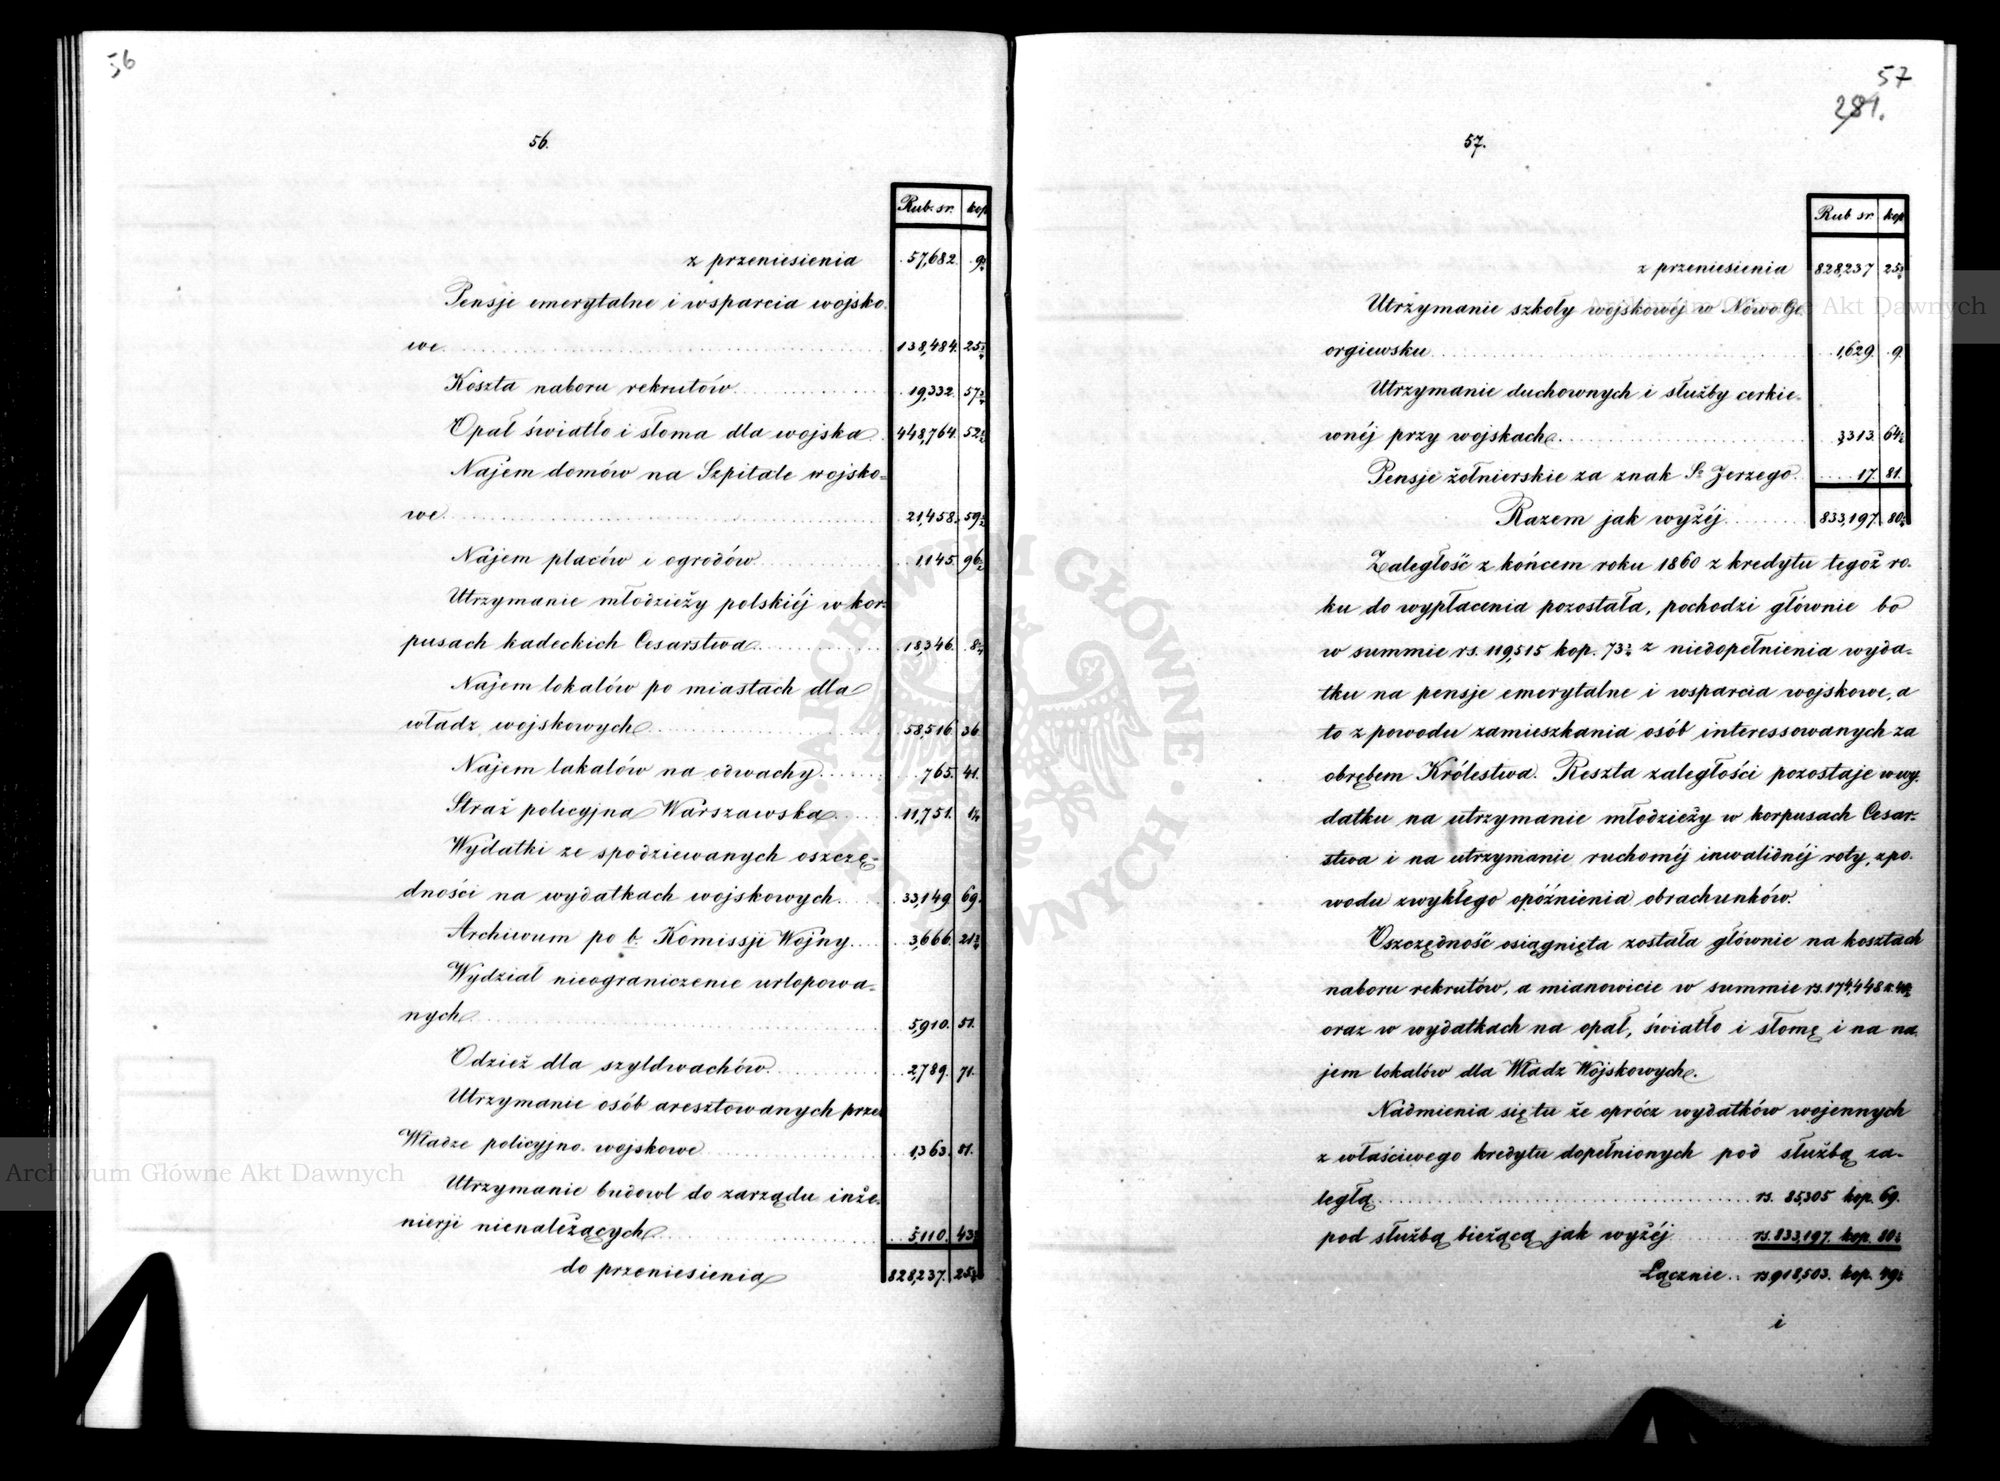 56
56.
Rub. sr. kop
z przeniesienia 57,682. 9½
Pensje emerytalne i wsparcia wojsko-
we 138,484. 25½
Koszta naboru rekrutów 19,332. 57½
Opał światło i słoma dla wojska 448,764. 52½
Najem domów na Szpitale wojsko-
we 21,458. 59½
Najem placów i ogrodów 1,145. 96½
Utrzymanie młodzieży polskiéj w kor-
pusach kadeckich Cesarstwa 18,346.
Najem lokalów po miastach dla
władz wojskowych 58,516. 36
Najem lokalów na odwachy 765. 41.
Straż policyjna Warszawska 11,751.
Wydatki ze spodziewanych oszczę-
dności na wydatkach wojskowych 33,149. 69.
Archiwum po b. Komissji Wojny 3,666. 21½
Wydział nieograniczenie urlopowa-
nych 5,910. 51.
Odzież dla szyldwachów 2,789. 71.
Utrzymanie osób aresztowanych przez
Władze policyjno-wojskowe 1,363. 81.
Utrzymanie budowl do zarządu inże-
nierji nienależących 5,110. 43
do przeniesienia 828,237. 25½
57
281.
57.
Rub sr. kop
z przeniesienia 828,237 25½
Utrzymanie szkoły wojskowéj w Nowo Ge
orgiewsku 1,629. 9.
Utrzymanie duchownych i służby cerkie-
wnéj przy wojskach 3,313. 64½
Pensje żołnierskie za znak Sº Jerzego 17. 81.
Razem jak wyżéj 833,197. 80½
Zaległość z końcem roku 1860 z kredytu tegoż ro-
ku do wypłacenia pozostała, pochodzi głównie bo
w summie rs. 119,515 kop. 73½ z niedopełnienia wyda-
tku na pensje emerytalne i wsparcia wojskowe, a
to z powodu zamieszkania osób interessowanych za
obrębem Królestwa. Reszta zaległości pozostaje w wy-
datku na utrzymanie młodzieży w korpusach Cesar-
stwa i na utrzymanie ruchoméj inwalidnéj roty, z po-
wodu zwykłego opóźnienia obrachunków.
Oszczędność osiągnięta została głównie na kosztach
naboru rekrutów, a mianowicie w summie rs. 174,448 k.
oraz w wydatkach na opał, światło i słomę i na na-
jem lokalów dla Władz Wojskowych.
Nadmienia się tu że oprócz wydatków wojennych
z właściwego kredytu dopełnionych pod służbą za-
ległą rs. 85,305 kop. 69.
pod służbą bieżącą jak wyżéj rs. 833,197. kop. 80½
Łącznie rs. 918,503. kop. 49½
i
Archiwum Główne Akt Dawnych
Archiwum Główne Akt Dawnych
ARCHIWUM GŁÓWNE AKT DAWNYCH